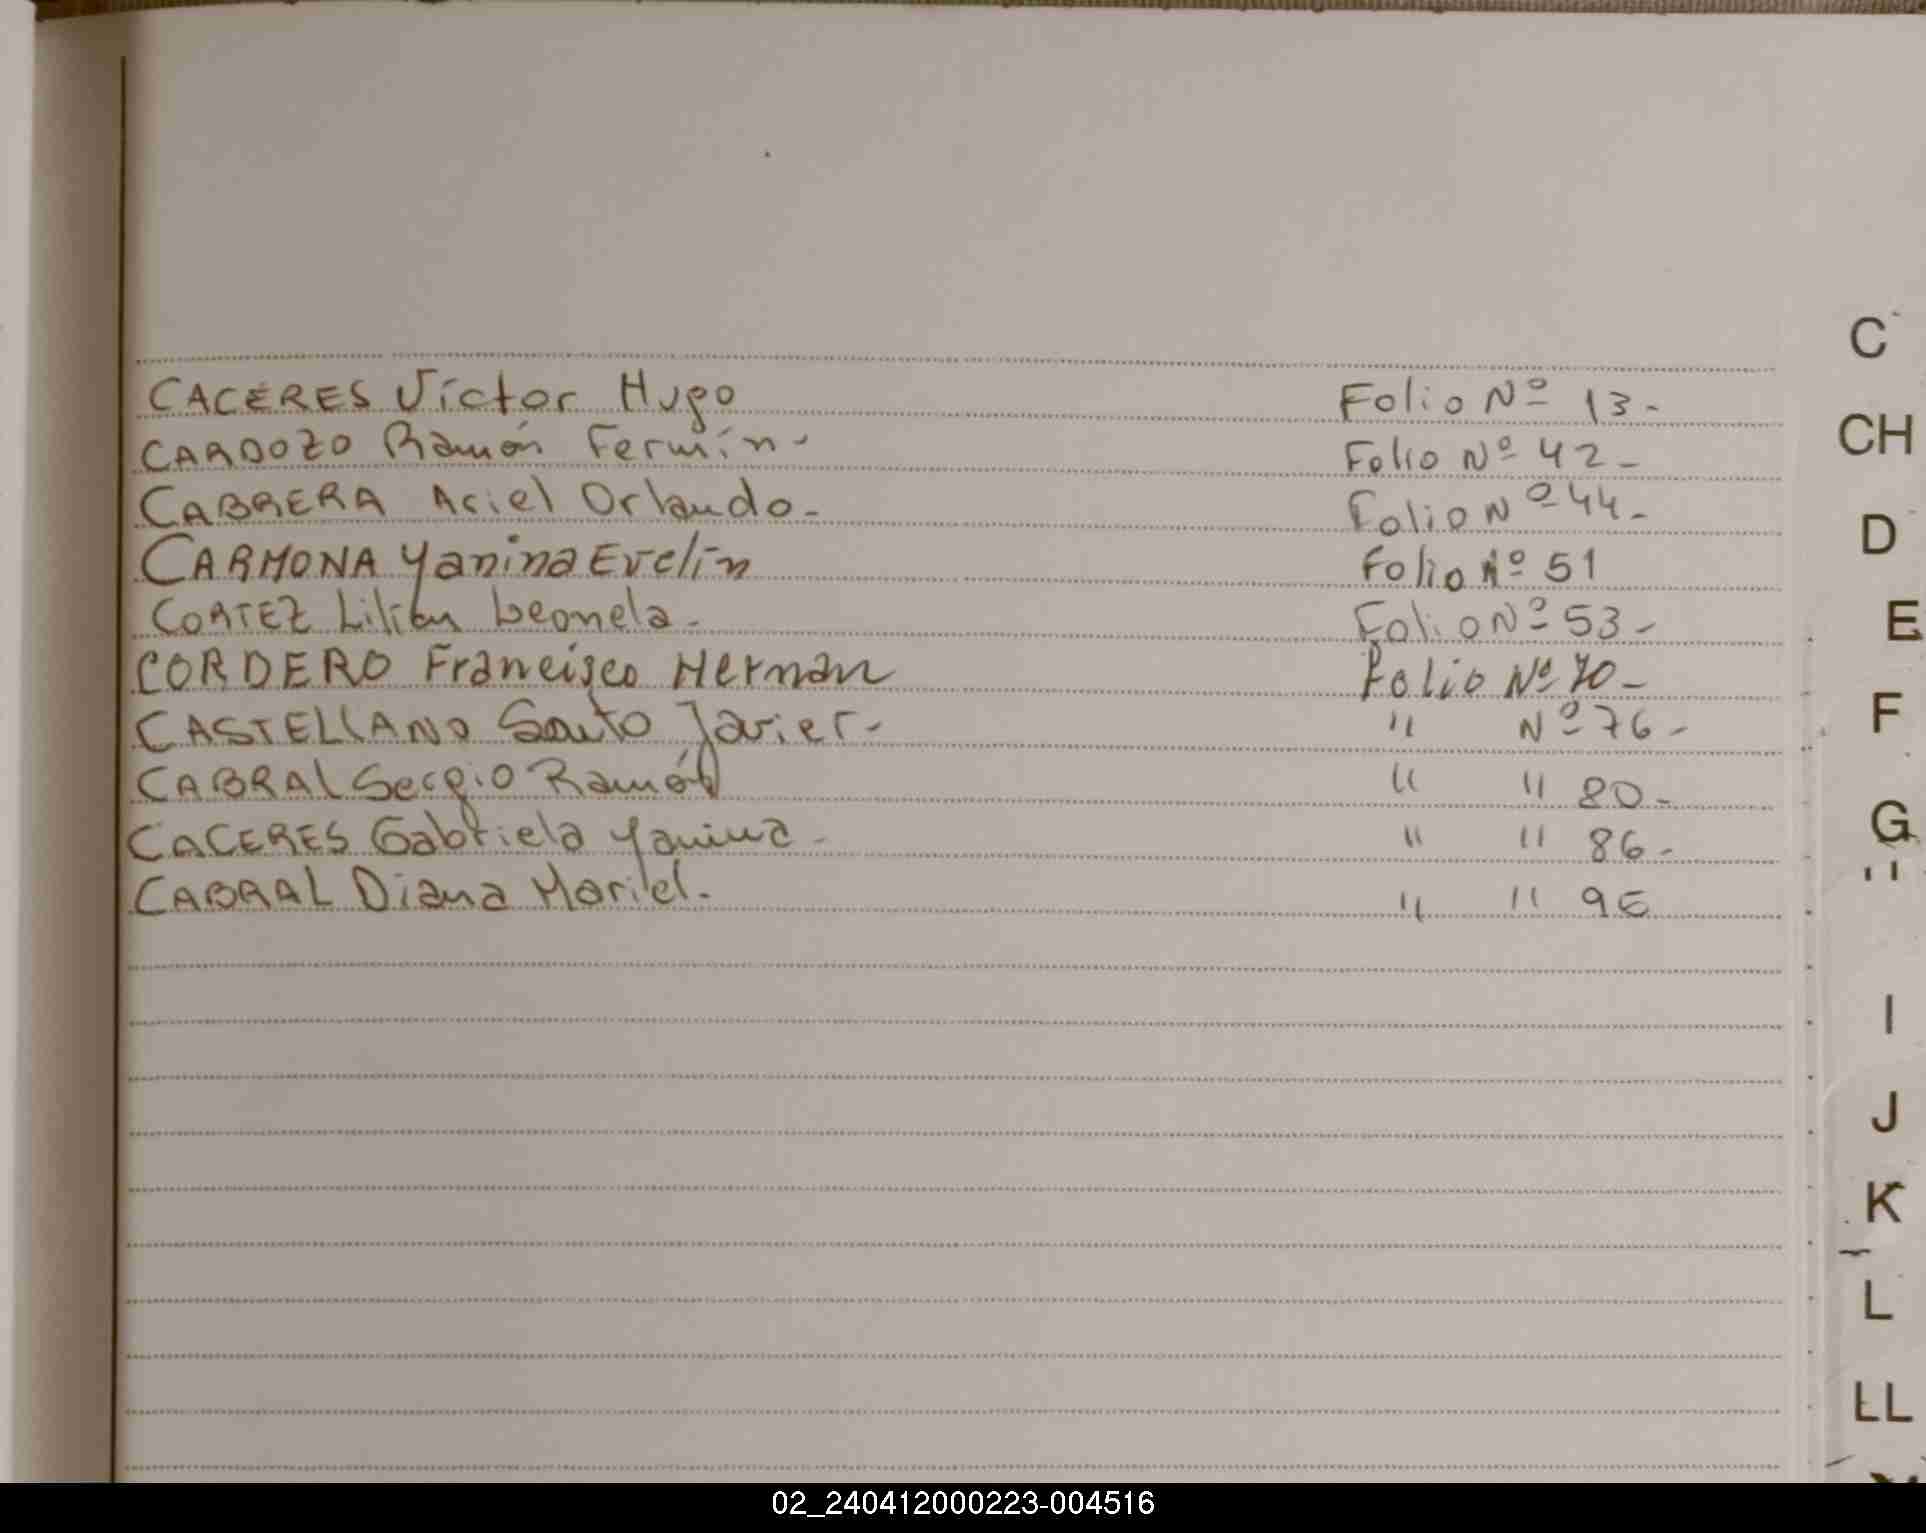 CACERES Víctor Hugo Folio Nº 13-
CARDOZO Ramón Fermín- Folio Nº 42-
CABRERA Ariel Orlando- Folio Nº 44-
CARMONA Yanina Evelin Folio Nº 51
CORTEZ Lilian Leonela- Folio Nº 53-
CORDERO Francisco Hernan Folio Nº 70-
CASTELLANO Santo Javier- " Nº 76-
CABRAL Sergio Ramón " " 80-
CACERES Gabriela Yanina- " " 86-
CABRAL Diana Mariel- " "
C
CH
D
E
F
G
I
J
K
L
LL
02_240412000223-004516